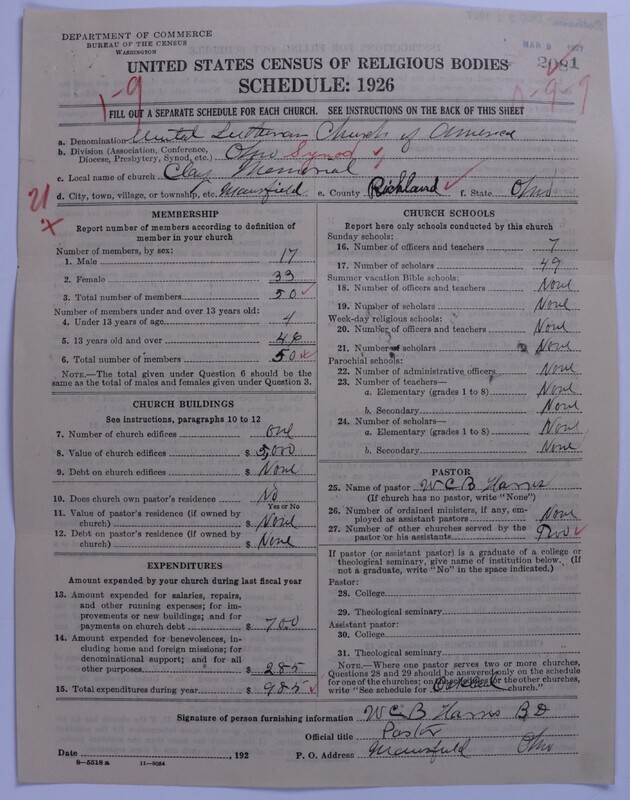 DEPARTMENT OF COMMERCE
BUREAU OF THE CENSUS
WASHINGTON
MAR 9 1927
2081
UNITED STATES CENSUS OF RELIGIOUS BODIES
SCHEDULE: 1926
1-9
FILL OUT A SEPARATE SCHEDULE FOR EACH CHURCH. SEE INSTRUCTIONS ON THE BACK OF THIS SHEET
a. Denomination United Lutheran Church of America
b. Division (Association, Conference, Diocese, Presbytery, Synod, etc.) Ohio Synod
c. Local name of church Clay Memorial
d. City, town, village, or township, etc. Mansfield e. County Richland f. State Ohio
21
x
MEMBERSHIP
Report number of members according to definition of
member in your church
Number of members, by sex:
1. Male 17
2. Female 33
3. Total number of members 50
Number of members under and over 13 years old:
4. Under 13 years of age 4
5. 13 years old and over 46
6. Total number of members 50
NOTE.—The total given under Question 6 should be the
same as the total of males and females given under Question 3.
CHURCH BUILDINGS
See instructions, paragraphs 10 to 12
7. Number of church edifices One
8. Value of church edifices $ 5,000
9. Debt on church edifices $ None
10. Does church own pastor's residence No
Yes or No
11. Value of pastor's residence (if owned by
church) $ None
12. Debt on pastor's residence (if owned by
church) $ None
EXPENDITURES
Amount expended by your church during last fiscal year
13. Amount expended for salaries, repairs,
and other running expenses; for im-
provements or new buildings; and for
payments on church debt $ 700
14. Amount expended for benevolences, in-
cluding home and foreign missions; for
denominational support; and for all
other purposes $ 285
15. Total expenditures during year $ 985
CHURCH SCHOOLS
Report here only schools conducted by this church
Sunday schools:
16. Number of officers and teachers 7
17. Number of scholars 49
Summer vacation Bible schools:
18. Number of officers and teachers None
19. Number of scholars None
Week-day religious schools:
20. Number of officers and teachers None
21. Number of scholars None
Parochial schools:
22. Number of administrative officers None
23. Number of teachers—
a. Elementary (grades 1 to 8) None
b. Secondary None
24. Number of scholars—
a. Elementary (grades 1 to 8) None
b. Secondary None
PASTOR
25. Name of pastor W C B Harris
(If church has no pastor, write "None")
26. Number of ordained ministers, if any, em-
ployed as assistant pastors None
27. Number of other churches served by the
pastor or his assistants Two
If pastor (or assistant pastor) is a graduate of a college or
theological seminary, give name of institution below. (If
not a graduate, write "No" in the space indicated.)
Pastor:
28. College
29. Theological seminary
Assistant pastor:
30. College
31. Theological seminary
NOTE.—Where one pastor serves two or more churches,
Questions 28 and 29 should be answered only on the schedule
for one of the churches; on schedules for the other churches,
write "See schedule for church."
Signature of person furnishing information W C B Harris B D
Official title Pastor
Date 192 P. O. Address Mansfield Ohio
8-5518 a 11-9084